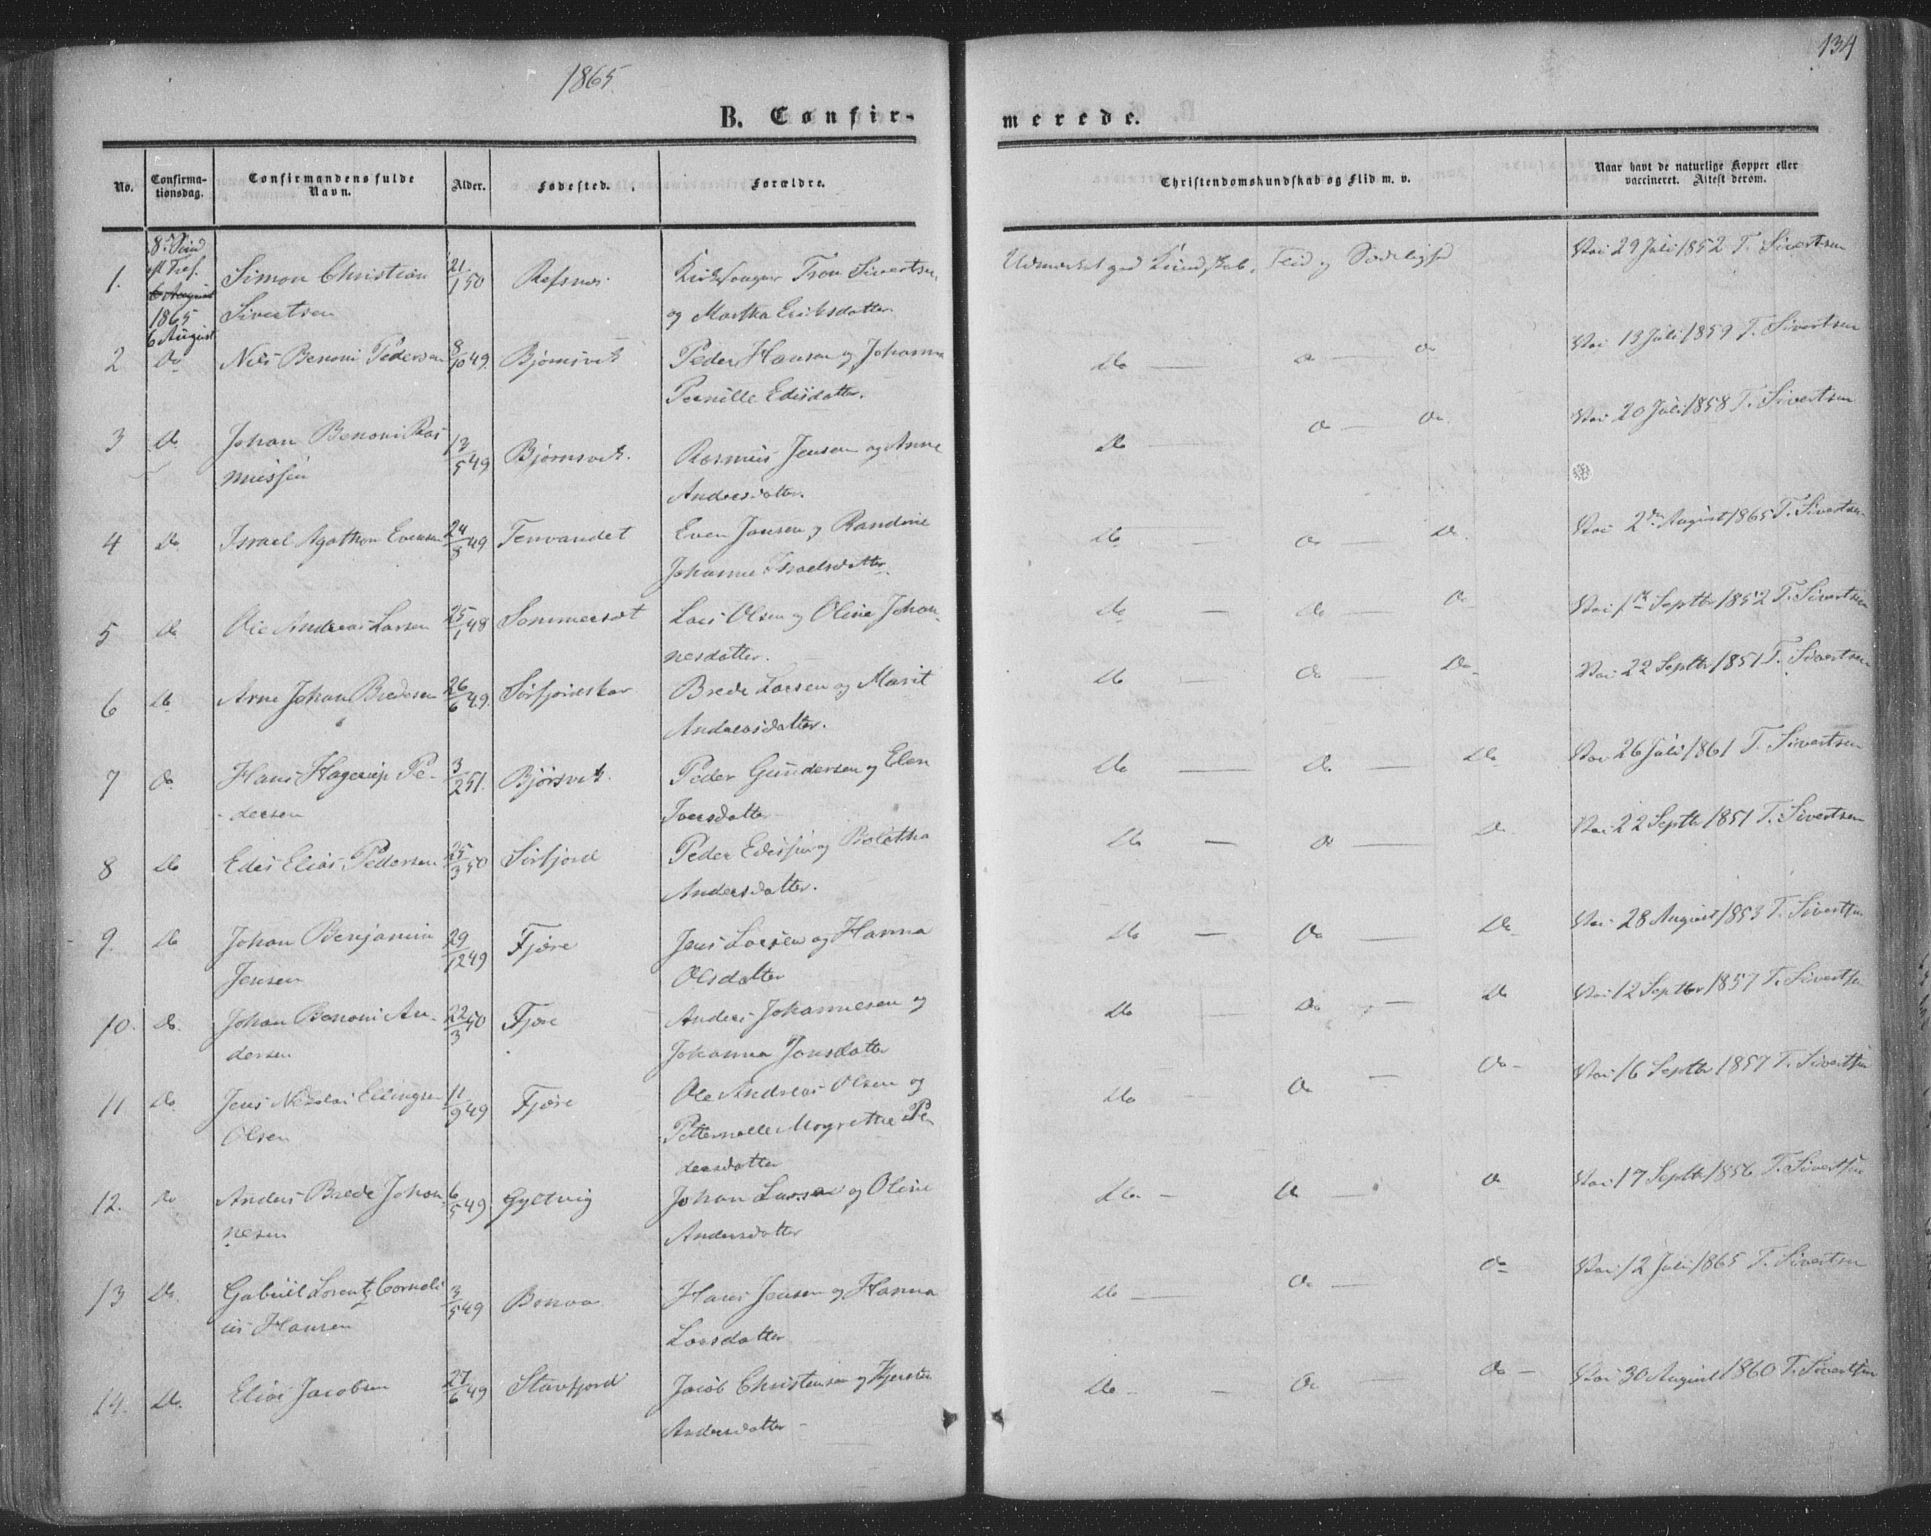 1865
134
B. Confir-
merede.
No.
Confirma-
tionsdag.
Confirmandens fulde
Navn.
Alder.
Fødested.
Forældre.
Christendomskundskab og Flid m. v.
Naar havt de naturlige Kopper eller
vaccineret. Attest derom.
1. Simon Christian 21/1 50 Refsnes Kirkesanger Tron Sivertsen Udmærket god Kundskab, Flid og Sædelighed Vac 29 Juli 1852 T. Sivertsen
1865 Sivertsen og Martha Eriksdatter
6 August
2 Do Nils Benoni Pedersen 8/10 49. Bjørnsvik Peder Hansen og Johanna Do — Do — Do Vac 13 Juli 1859 T. Sivertsen
Pernille Edisdatter.
3 Do Johan Benoni Ras 13/5 49 Bjørnsvik. Rasmus Jensen og Anne Do — Do — Do Vac 20 Juli 1858 T. Sivertsen
mussen Andersdatter.
4 Do Israel Agathon Evensen 24/8 49 Tenvandet Even Jansen og Randine Do — Do — Do. Vac 2den August 1865 T. Sivertsen
Johanna Israelsdatter
5 Do Ole Andreas Larsen 25/1 48 Sommerset Lars Olsen og Oline Johan- Do — Do Do Vac 1ste Septbr 1852 T. Sivertsen
nesdatter.
6 Do Arne Johan Bredesen 26/6 49. Sørfjordskar Brede Larsen og Marit Do — Do Do Vac 22 Septbr 1851 T. Sivertsen
Andreasdatter.
7 Do Hans Hagerup Pe- 3/2 51. Bjørsvik Peder Gundersen og Elen Do — Do — Do Vac 26 Juli 1861 T. Sivertsen
- dersen Iversdatter
8 Do Edis Elias Pedersen 25/3 50 Sørfjord Peder Edissen og Do — Do — Do Vac 22 Septbr 1851 T. Sivertsen
Andersdatter.
9. Do Johan Benjamin 29/12 49 Fjære Jens Larsen og Hanna Do — Do — Do Vac 28 August 1853 T. Sivertsen
Jensen Olsdatter
10. Do. Johan Benoni An- 22/3 50 Fjære Anders Johannesen og Do Do — Do Vac 12 Septbr 1857 T. Sivertsen
dersen Johanna Jonsdatter
11 Do Jens Nicolai Ellingsen 11/9 49 Fjære Ole Andreas Olsen og Do — Do — Do - Vac 16 Septbr 1857 T. Sivertsen
Olsen Petternelle Magrethe Pe
dersdatter
12. Do Anders Brede Johan 6/5 49. Gyltvig Johan Larsen og Oline Do — Do — Do Vac 17 Septbr 1856 T. Sivertsen
nesen Andersdatter
13 Do. Gabriel Lorentz Corneli 3/5 49 Bonaa. Hans Jensen og Hanna Do — Do — Do Vac 12 Juli 1865 T. Sivertsen
us Hansen Larsdatter
14. Do. Elias Jacobsen 27/6 49 Stavfjord Jacob Christensen og Kjersten Do - — Do — Do — Vac 30 August 1860 T. Sivertsen
Andersdatter -